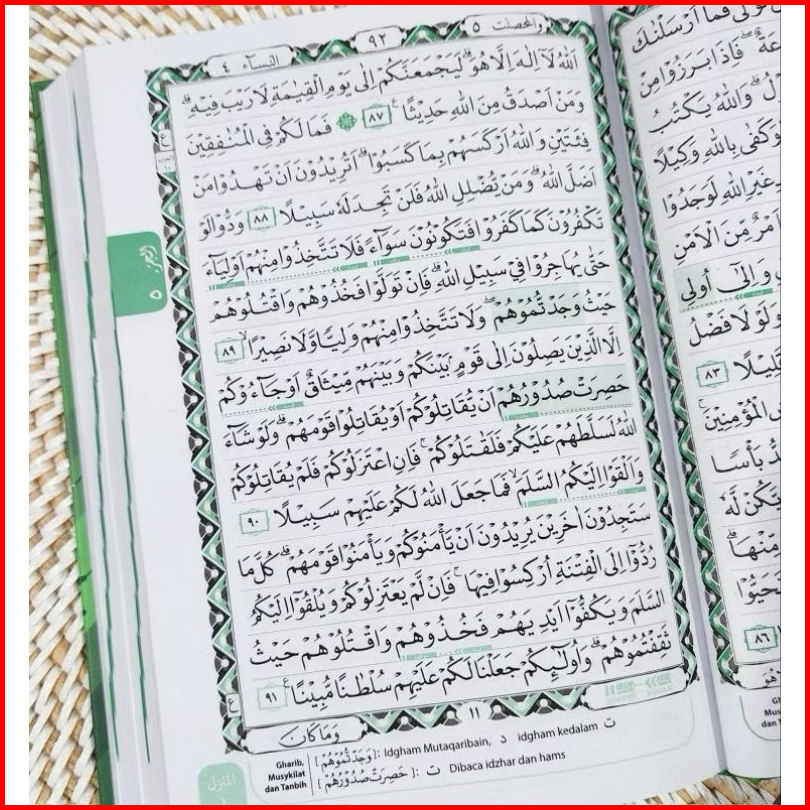 والمحصنت ٥
٩٢
النساء ٤
اَللّٰهُ لَآ اِلٰهَ اِلَّا هُوَۗ لَيَجْمَعَنَّكُمْ اِلٰى يَوْمِ الْقِيٰمَةِ لَا رَيْبَ فِيْهِۗ
وَمَنْ اَصْدَقُ مِنَ اللّٰهِ حَدِيْثًا ࣖ ٨٧ ۞ فَمَا لَكُمْ فِى الْمُنٰفِقِيْنَ
فِئَتَيْنِ وَاللّٰهُ اَرْكَسَهُمْ بِمَا كَسَبُوْاۗ اَتُرِيْدُوْنَ اَنْ تَهْدُوْا مَنْ
اَضَلَّ اللّٰهُۗ وَمَنْ يُّضْلِلِ اللّٰهُ فَلَنْ تَجِدَ لَهٗ سَبِيْلًا ٨٨ وَدُّوْا لَوْ
تَكْفُرُوْنَ كَمَا كَفَرُوْا فَتَكُوْنُوْنَ سَوَاۤءً فَلَا تَتَّخِذُوْا مِنْهُمْ اَوْلِيَاۤءَ
حَتّٰى يُهَاجِرُوْا فِيْ سَبِيْلِ اللّٰهِۗ فَاِنْ تَوَلَّوْا فَخُذُوْهُمْ وَاقْتُلُوْهُمْ
حَيْثُ وَجَدْتُّمُوْهُمْۖ وَلَا تَتَّخِذُوْا مِنْهُمْ وَلِيًّا وَّلَا نَصِيْرًاۙ ٨٩
اِلَّا الَّذِيْنَ يَصِلُوْنَ اِلٰى قَوْمٍۢ بَيْنَكُمْ وَبَيْنَهُمْ مِّيْثَاقٌ اَوْ جَاۤءُوْكُمْ
حَصِرَتْ صُدُوْرُهُمْ اَنْ يُّقَاتِلُوْكُمْ اَوْ يُقَاتِلُوْا قَوْمَهُمْۗ وَلَوْ شَاۤءَ
اللّٰهُ لَسَلَّطَهُمْ عَلَيْكُمْ فَلَقٰتَلُوْكُمْۚ فَاِنِ اعْتَزَلُوْكُمْ فَلَمْ يُقَاتِلُوْكُمْ
وَاَلْقَوْا اِلَيْكُمُ السَّلَمَۙ فَمَا جَعَلَ اللّٰهُ لَكُمْ عَلَيْهِمْ سَبِيْلًا ٩٠
سَتَجِدُوْنَ اٰخَرِيْنَ يُرِيْدُوْنَ اَنْ يَّأْمَنُوْكُمْ وَيَأْمَنُوْا قَوْمَهُمْۗ كُلَّ مَا
رُدُّوْٓا اِلَى الْفِتْنَةِ اُرْكِسُوْا فِيْهَاۚ فَاِنْ لَّمْ يَعْتَزِلُوْكُمْ وَيُلْقُوْٓا اِلَيْكُمُ
السَّلَمَ وَيَكُفُّوْٓا اَيْدِيَهُمْ فَخُذُوْهُمْ وَاقْتُلُوْهُمْ حَيْثُ
ثَقِفْتُمُوْهُمْۗ وَاُولٰۤىِٕكُمْ جَعَلْنَا لَكُمْ عَلَيْهِمْ سُلْطٰنًا مُّبِيْنًا ࣖ ٩١
وَمَا كَانَ
١١
Gharib, Musykilat dan Tanbih
[وَجَدْتُّمُوْهُمْ]: Idgham Mutaqaribain, د idgham kedalam ت
[حَصِرَتْ صُدُوْرُهُمْ]: ت Dibaca idzhar dan hams
الجزء ٥
المنزل
فَمَآ اَرْسَلْنٰكَ
فَاِذَا بَرَزُوْا مِنْ
وَاللّٰهُ يَكْتُبُ
وَكَفٰى بِاللّٰهِ وَكِيْلًا
غَيْرِ اللّٰهِ لَوَجَدُوْا
اَمْرٌ مِّنَ الْاَمْنِ
وَاِلٰٓى اُولِى
وَلَوْلَا فَضْلُ
٨٣
الْمُؤْمِنِيْنَ
بَأْسًا
يَكُنْ لَّهٗ
مِّنْهَاۗ
٨٦